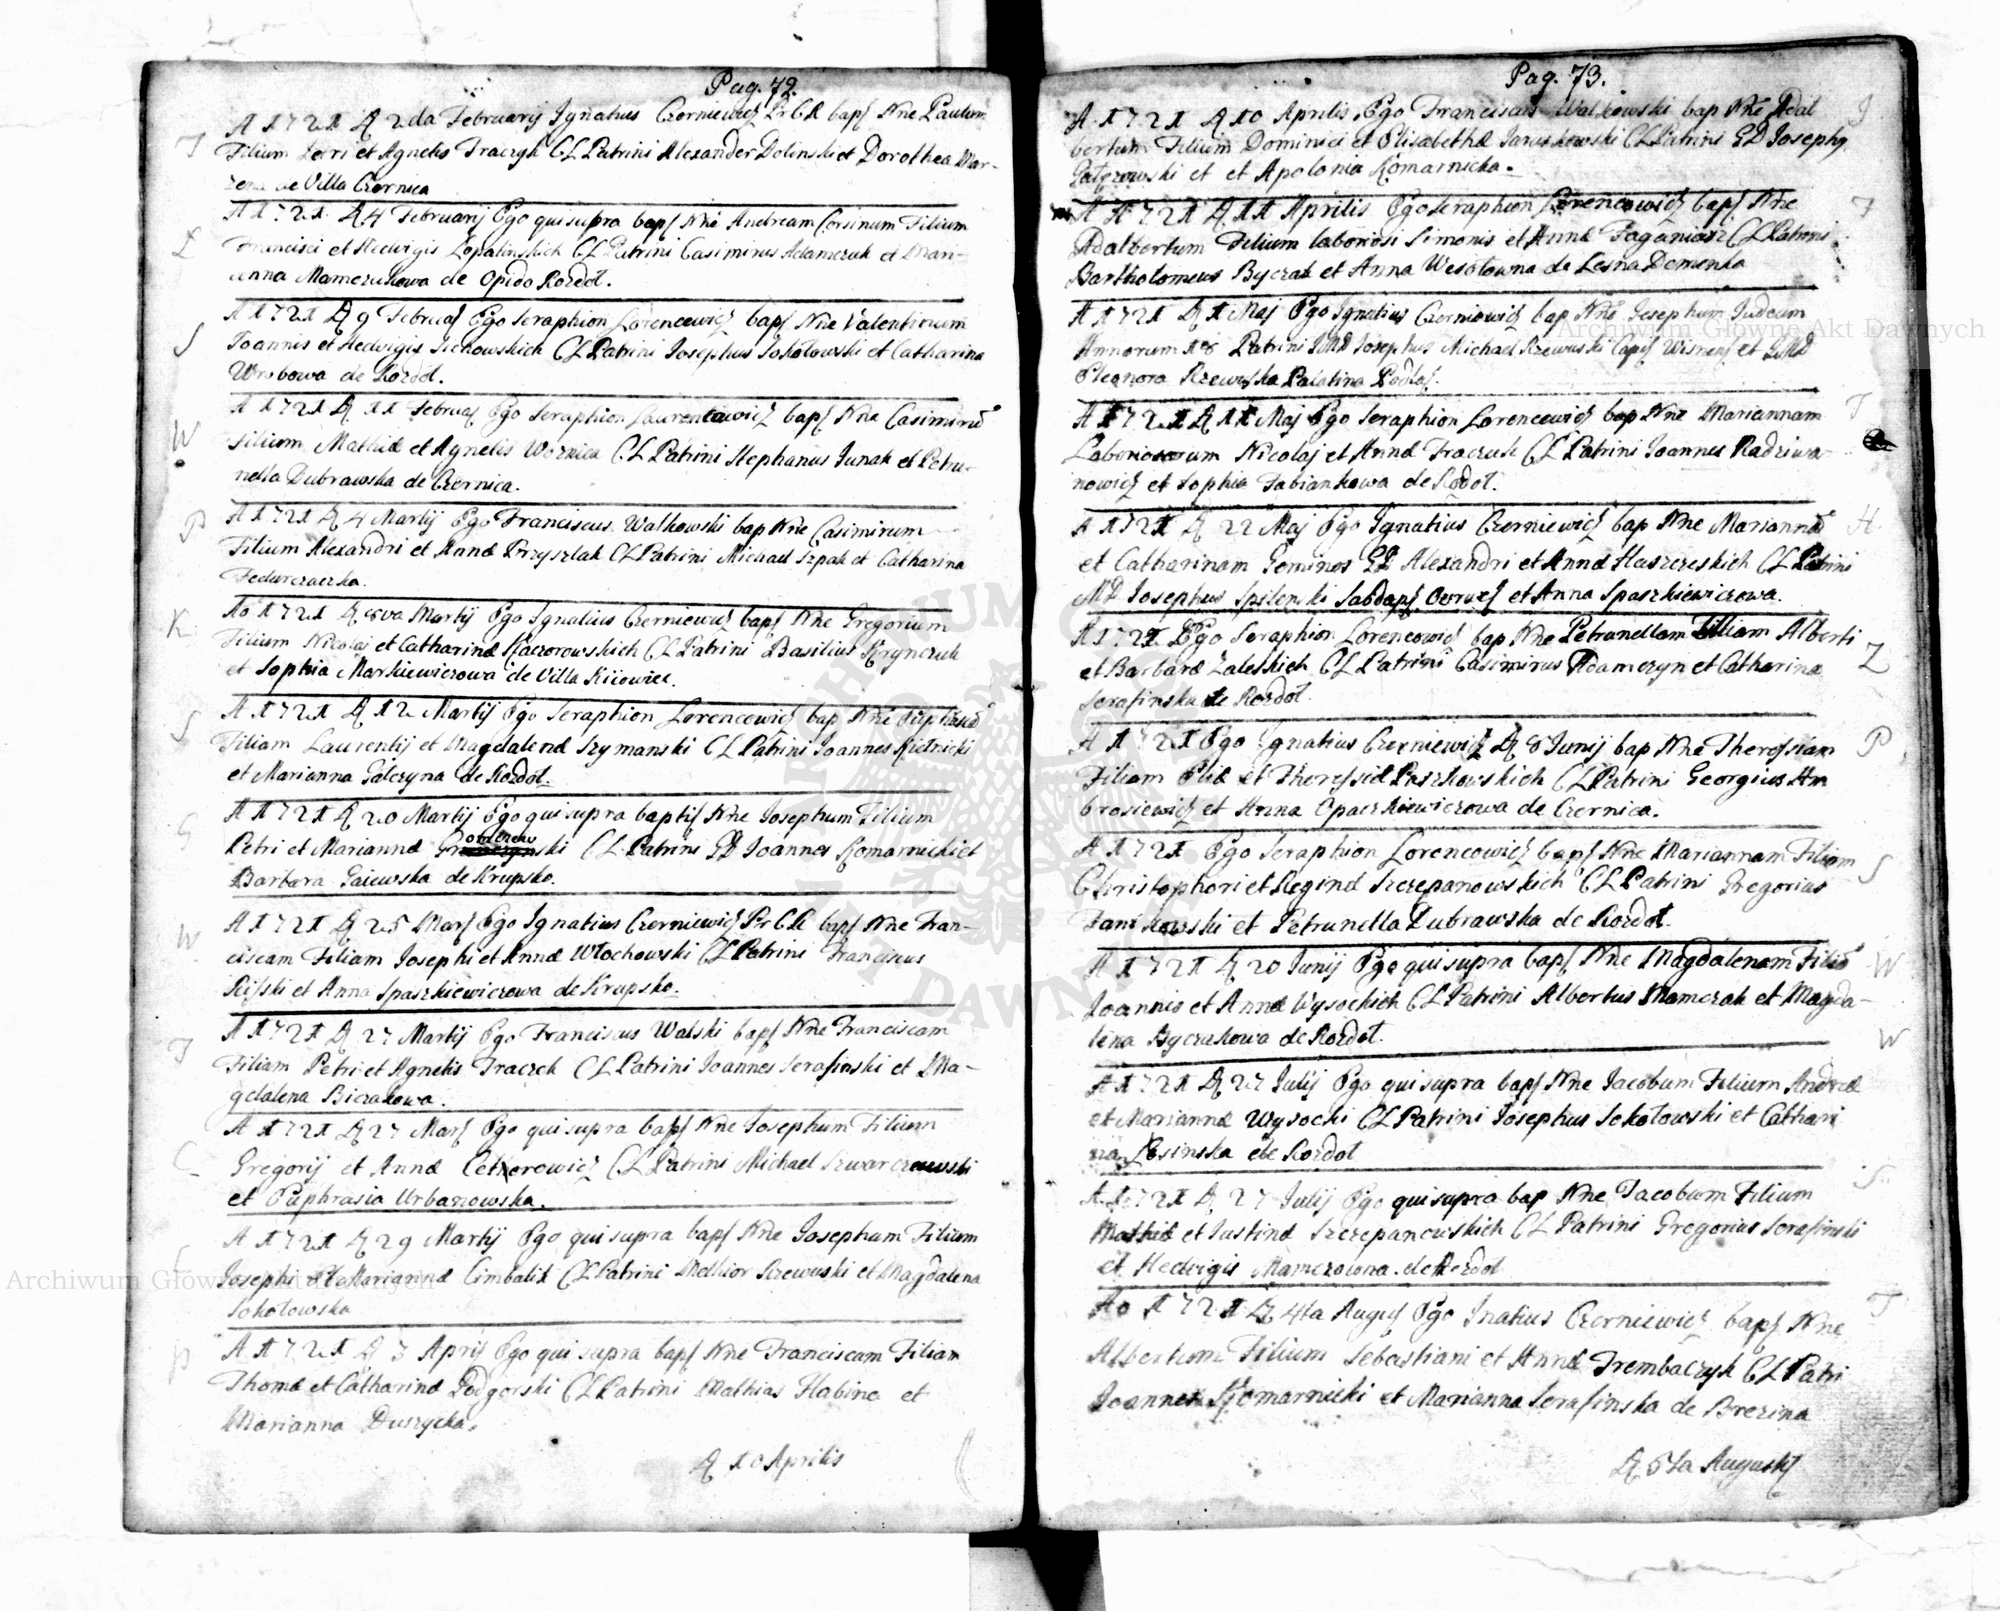 Pag. 72.
A 1721 D 2da Februarij Ignatius Czerniewicz Pr CR bapt Nne Paulum
Filium Petri et Agnetis Traczyk CL Patrini Alexander Dolinski et Dorothea Mar-
zena de Villa Czernica
A 1721. D 4 Februarij Ego qui supra bapt Nne Andream Corsinum Filium
Francisci et Hedvigis Lopatinskich CL Patrini Casimirus Adamczuk et Mari-
anna Mamczukowa de Opido Rozdol.
A 1721 D 9 Februar Ego Seraphion Lorencewicz bapt Nne Valentinum
Joannis et Hedvigis CL Patrini Josephus Sokołowski et Catharina
Wrobowa de Rozdol.
A 1721 D 11 Februar Ego Seraphion Laurentowicz bapt Nne Casimirum
Filium Mathiæ et Agnetis Woznica CL Patrini Stephanus Junak et Petru-
nella Dubrawska de Czernica.
A 1721 D 4 Martij Ego Franciscus Walkowski bap Nne Casimirum
Filium Alexandri et Annæ Przyszlak CL Patrini Michael Szpak et Catharina
Fedurczaczka.
Ao 1721 D 8va Martij Ego Ignatius Czerniewicz bapt Nne Gregorium
Filium Nicolaj et Catharinæ Kaczorowskich CL Patrini Basilius Krynczuk
et Sophia Markiewiczowa de Villa Kiiowiec.
A 1721 D 12 Martij Ego Seraphion Lorencewicz bap Nne
Filiam Laurentij et Magdalenæ Szymanski CL Patrini Joannes Kietnicki
et Marianna Galczyna de Rozdol.
A 1721 D 20 Martij Ego qui supra baptis Nne Josephum Filium
Petri et Mariannæ CL Patrini GD Joannes Komarnicki et
Barbara Gaiewska de Krupsko.
A 1721 D 25 Mart Ego Ignatius Czerniewicz Pr CR bapt Nne Fran-
ciscam Filiam Josephi et Annæ Włochowski CL Patrini Franciscus
et Anna Spaszkiewiczowa de Krupsko.
A 1721 D 27 Martij Ego Franciscus Walski bapt Nne Franciscam
Filiam Petri et Agnetis Traczck CL Patrini Joannes Serafinski et Ma-
gdalena Biczakowa.
A 1721 D 27 Mart Ego qui supra bapt Nne Josephum Filium
Gregorij et Annæ CL Patrini Michael Szwarczewski
et Euphrasia Urbanowska.
A 1721 D 29 Martij Ego qui supra bapt Nne Josephum Filium
Josephi et Mariannæ Cimbalik CL Patrini Melhior Rzewuski et Magdalena
Sokołowska
A 1721 D 3 April Ego qui supra bapt Nne Franciscam Filiam
Thomæ et Catharinæ Podgorski CL Patrini Mathias Habina et
Marianna Duszycka.
D 10 Aprilis
Pag. 73.
A 1721 D 10 Aprilis Ego Franciscus Walkowski bap Nne Adal
bertum Filium Dominici et Elisabethæ Jaruszkowski CL Patrini GD Josephy
et et Apolonia Komarnicka.
A 1721 D 11 Aprilis Ego Seraphion Lorencowicz bapt Nne
Adalbertum Filium laboriosi Simonis et Annæ CL Patrini
Bartholomeus Byczak et Anna Wesołowna de Lesna Demenka
A 1721 D 1 Maj Ego Ignatius Czerniewicz bap Nne Josephum Judeum
Annorum 18 Patrini IMD Josephus Michael Rzewuski et IMD
Eleonora Rzewuska Palatina Podlas.
A 1721 D 11 Maj Ego Seraphion Lorencewicz bap Nne Mariannam
Laboriosorum Nicolaj et Annæ Traczuk CL Patrini Joannes Radziwa-
nowicz et Sophia Fabiankowa de Rozdol.
A 1721 D 22 Maj Ego Ignatius Czerniewicz bap Nne Mariannam
et Catharinam Geminos GD Alexandri et Annæ CL Patrini
MD Josephus et Anna Spaszkiewiczowa.
A 1721 Ego Seraphion Lorencowicz bap Nne Petrunellam Filiam Alberti
et Barbaræ Zaleskich CL Patrini Casimirus Adamczyn et Catharina
Serafinska de Rozdol
A 1721 Ego Ignatius Czerniewicz D 8 Junij bap Nne Theressiam
Filiam Eliæ et Theressiæ Paszkowskich CL Patrini Georgius Am
brosiewicz et Anna Opaczkiewiczowa de Czernica.
A 1721 Ego Seraphion Lorencowicz bapt Nne Mariannam Filiam
Christophori et Reginæ Szczepanowskich CL Patrini Gregorius
Jankowski et Petrunella Dubrawska de Rozdol.
A 1721 D 20 Junij Ego qui supra bapt Nne Magdalenam Filiam
Joannis et Annæ Wysockich CL Patrini Albertus Mamczak et Magda-
lena Byczakowa de Rozdol.
A 1721 D 27 Julij Ego qui supra bapt Nne Jacobum Filium Andreæ
et Mariannæ Wysocki CL Patrini Josephus Sokołowski et Cathari
na Łosinska de Rozdol
A 1721 D 27 Julij Ego qui supra bap Nne Jacobum Filium
Mathiæ et Justinæ Szczepanowskich CL Patrini Gregorius Serafinski
et Hedvigis de Rozdol
Ao 1721 D 4ta August Ego Inatius Czerniewicz bapt Nne
Albertum Filium Sebastiani et Annæ Trembaczyk CL Patri
Joannes Komarnicki et Marianna Serafinska de Brezina
D 5ta Augusti
Archiwum Główne Akt Dawnych